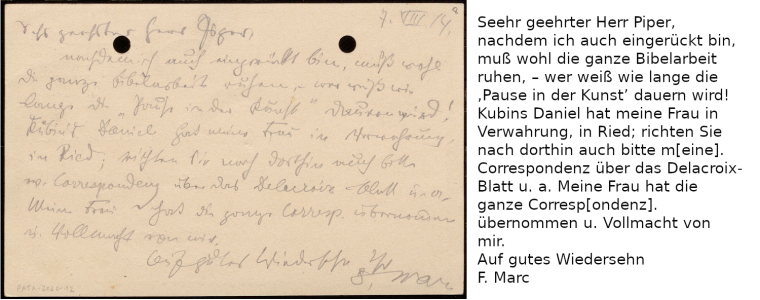 7. VIII 14.
Sehr geehrter Herr Piper,
nachdem ich auch eingerückt bin, muß wohl
die ganze Bibelarbeit ruhen, – wer weiß wie
lange die „Pause in der Kunst“ dauern wird!
Kubins Daniel hat meine Frau in Verwahrung,
in Ried; richten Sie nach dorthin auch bitte
m. Correspondenz über das Delacroix-Blatt u. a.
Meine Frau hat die ganze Corresp. übernommen
u. Vollmacht von mir.
Auf gutes Wiedersehn
F. Marc
Seehr geehrter Herr Piper,
nachdem ich auch eingerückt bin,
muß wohl die ganze Bibelarbeit
ruhen, – wer weiß wie lange die
‚Pause in der Kunst’ dauern wird!
Kubins Daniel hat meine Frau in
Verwahrung, in Ried; richten Sie
nach dorthin auch bitte m[eine].
Correspondenz über das Delacroix-
Blatt u. a. Meine Frau hat die
ganze Corresp[ondenz].
übernommen u. Vollmacht von
mir.
Auf gutes Wiedersehn
F. Marc